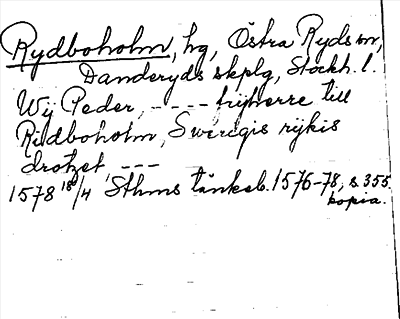 Rydboholm, hg, Östra Ryds sn,
Danderyds skplg, Stockh. l.
Wij Peder, - - - - frijherre till
Ridboholm, Sweregis rijkis
drotzet, - - -
1578 18/4 Sthms tänkeb. 1576-78, s. 355.
kopia.